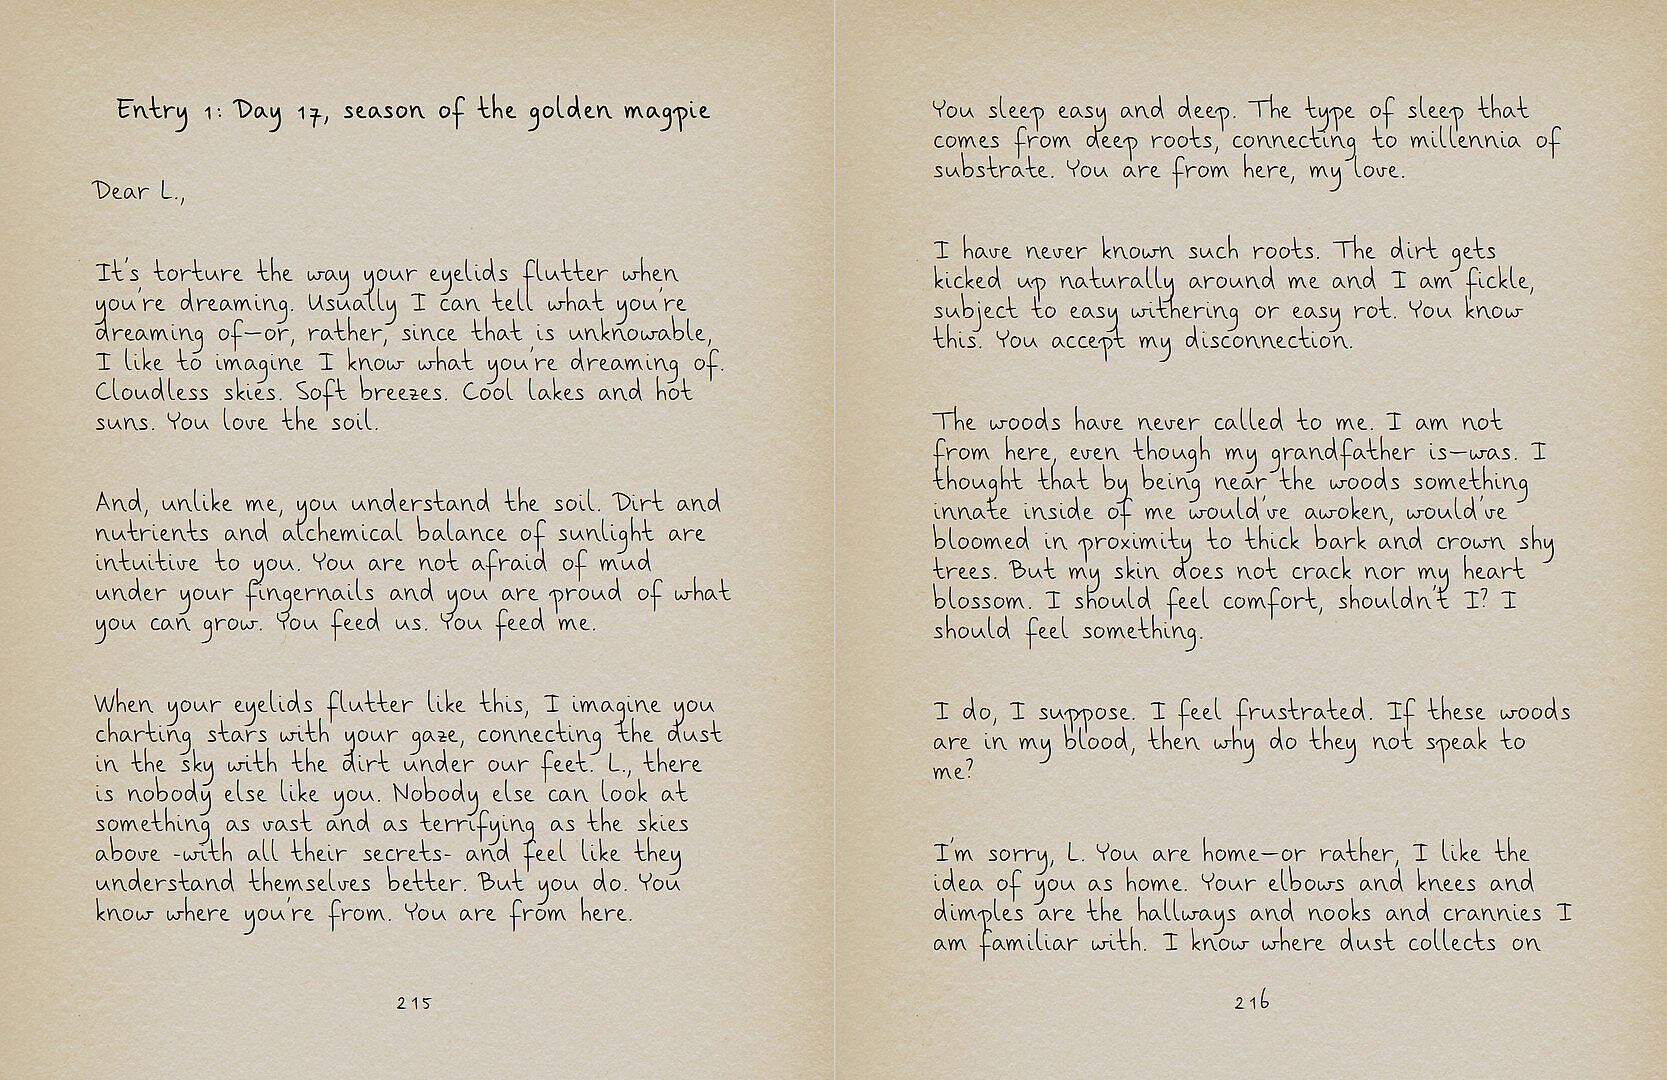 Entry 1: Day 17, season of the golden magpie
Dear L.,
It's torture the way your eyelids flutter when
you're dreaming. Usually I can tell what you're
dreaming of—or, rather, since that is unknowable,
I like to imagine I know what you're dreaming of.
Cloudless skies. Soft breezes. Cool lakes and hot
suns. You love the soil.
And, unlike me, you understand the soil. Dirt and
nutrients and alchemical balance of sunlight are
intuitive to you. You are not afraid of mud
under your fingernails and you are proud of what
you can grow. You feed us. You feed me.
When your eyelids flutter like this, I imagine you
charting stars with your gaze, connecting the dust
in the sky with the dirt under our feet. L., there
is nobody else like you. Nobody else can look at
something as vast and as terrifying as the skies
above -with all their secrets- and feel like they
understand themselves better. But you do. You
know where you're from. You are from here.
215
You sleep easy and deep. The type of sleep that
comes from deep roots, connecting to millennia of
substrate. You are from here, my love.
I have never known such roots. The dirt gets
kicked up naturally around me and I am fickle,
subject to easy withering or easy rot. You know
this. You accept my disconnection.
The woods have never called to me. I am not
from here, even though my grandfather is—was. I
thought that by being near the woods something
innate inside of me would've awoken, would've
bloomed in proximity to thick bark and crown shy
trees. But my skin does not crack nor my heart
blossom. I should feel comfort, shouldn't I? I
should feel something.
I do, I suppose. I feel frustrated. If these woods
are in my blood, then why do they not speak to
me?
I'm sorry, L. You are home—or rather, I like the
idea of you as home. Your elbows and knees and
dimples are the hallways and nooks and crannies I
am familiar with. I know where dust collects on
216